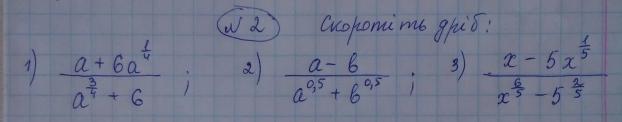 №2 Скоротіть дріб:
1) \frac{a + 6a^{\frac{1}{4}}}{a^{\frac{3}{4}} + 6} ; 2) \frac{a - b}{a^{0,5} + b^{0,5}} ; 3) \frac{x - 5x^{\frac{1}{5}}}{x^{\frac{6}{5}} - 5^{\frac{2}{5}}}